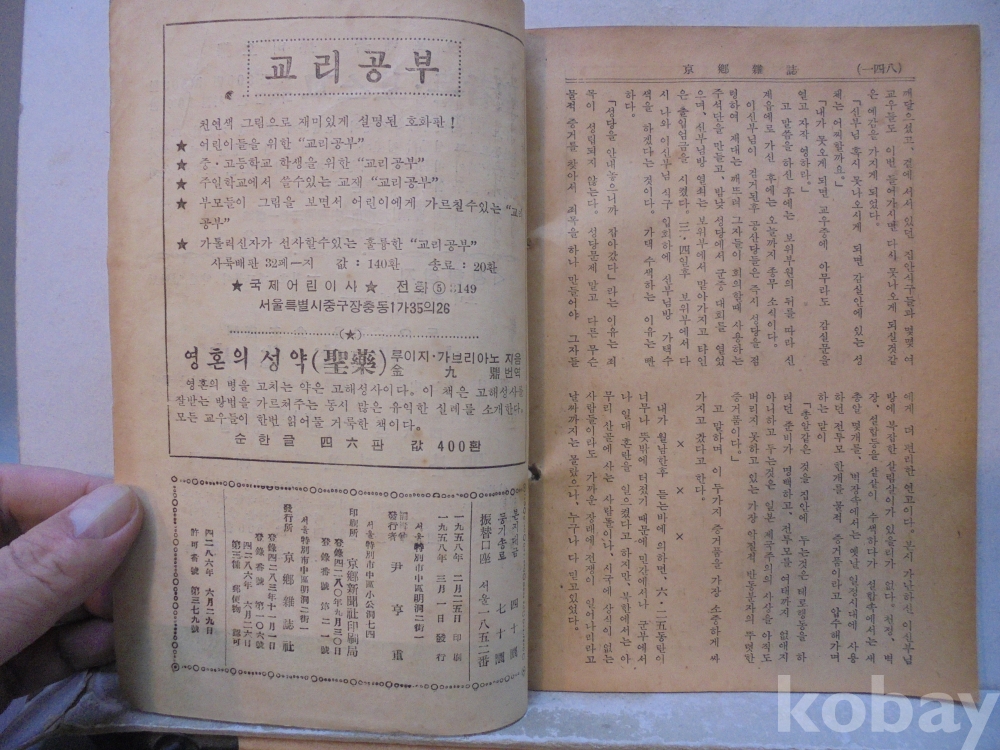 교리공부
천연색 그림으로 재미있게 설명된 호화판!
★ 어린이들을 위한 “교리공부”
★ 중·고등학교 학생을 위한 “교리공부”
★ 주일학교에서 쓸수있는 교재 “교리공부”
★ 부모들이 그림을 보면서 어린이에게 가르칠수있는 “교리
공부”
★ 가톨릭신자가 선사할수있는 훌륭한 “교리공부”
사륙배판 32페—지 값 : 140환 송료 : 20환
★ 국제어린이사 ★ 전화 ⑤ 3149
서울특별시중구장충동1가35의26
영혼의 성약(聖藥) 루이지·가브리아노 지음
金 九 鼎 번역
영혼의 병을 고치는 약은 고해성사이다. 이 책은 고해성사를
잘받는 방법을 가르쳐주는 동시 많은 유익한 실례를 소개한다.
모든 교우들이 한번 읽어둘 거룩한 책이다.
순한글 四六판 값 400환
四十圜
七十圜
振替口座 서울一八五二番
一九五八年 二月二五日 印刷
一九五八年 三月 一日 發行
서울特別市中區明洞二街一
發行者 尹亨重
서울特別市中區小公洞七四
印刷所 京鄕新聞社印刷局
登錄四二八〇年九月三〇日
登錄番號 第二一號
서울特別市中區明洞二街一
發行所 京鄕雜誌社
登錄四二八三年十一月一日
登錄番號 第一〇六號
四二八六年 六月二六日
第三種 郵便物 認可
四二八六年 六月二九日
許可番號 第三七九號
京鄕雜誌 (一四八)
깨달으셨고, 곁에 서서 있던 집안식구들과 몇몇 여
교우들도 이번 들어가시면 다시 못나오게 되실것같
은 예감을 가지게 되었다.
「신부님 혹시 못나오시게 되면 감실안에 있는 성
체는 어찌할까요。」
「내가 못오게 되면 교우중에 아무라도 감실문을
열고 자작 영하라。」
고 말씀을 하신 후에는 보위부원의 뒤를 따라 신
계읍에로 가신 후에는 오늘까지 종무 소식이다.
이신부님이 검거된후 공산당들은 즉시 성당을 점
령하여 제대는 깨뜨려 그자들이 회의할때 사용하는
주석단을 만들고, 밤낮 성당에서 군중대회를 열었
으며, 신부님방 열쇠는 보위부에서 맡아가지고 타인
은 출입엄금을 시켰다. 三·四일후 보위부에서 다
시 나와 이신부님 식구 입회하에 신부님방 가택수
색을 하겠다는 것이다. 가택 수색하는 이유는 뻔
하다.
「성당을 안내놓으니까 잡아갔다」라는 이유는 죄
목이 성립되지 않는다. 성당문제 말고 다른 무슨
물적 증거를 찾아서 죄목을 하나 만들어야 그자들
에게 더 편리한 연고이다. 본시 가난하신 이신부님
방에 무참한 살림살이가 있을리가 없다. 천정, 벽
장, 설합등을 샅샅이 수색하다가 설합속에서는 새
총알 몇개를, 벽장속에서는 옛날 일정시대에 사용
하던 전투모 한개를 물적 증거품이라고 압수해가며
하는 말이
「총알같은 것을 집안에 두는것은 테로행동을 하
려던 준비가 명백하고, 전투모를 여태까지 없애지
아니하고 두는것은 일본 제국주의의 사상을 아직도
버리지 못하고 있는 가장 악질적 반동분자의 뚜렷한
증거품이다。」
고 말하며 이 두가지 증거품을 가장 소중하게 싸
가지고 갔다고한다.
× × × ×
내가 월남한후 듣는바에 의하면, 六·二五동란이
너무나 뜻밖에 터졌기 때문에 민간에서나 군부에서
나 일대 혼란을 일으켰다고 하지만, 북한에서는 아
무리 산골에 사는 사람들이나, 시국에 상식이 없는
사람들이라도 가까운 장래에 전쟁이 일어나리라고
날짜까지는 몰랐으나, 누구나 다 믿고있었다.
kobay